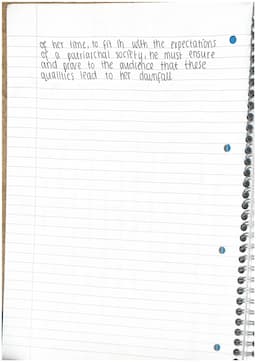 of her time, to fit in with the expectations
of a patriarchal society. he must ensure
and prove to the audience that these
qualities lead to her downfall